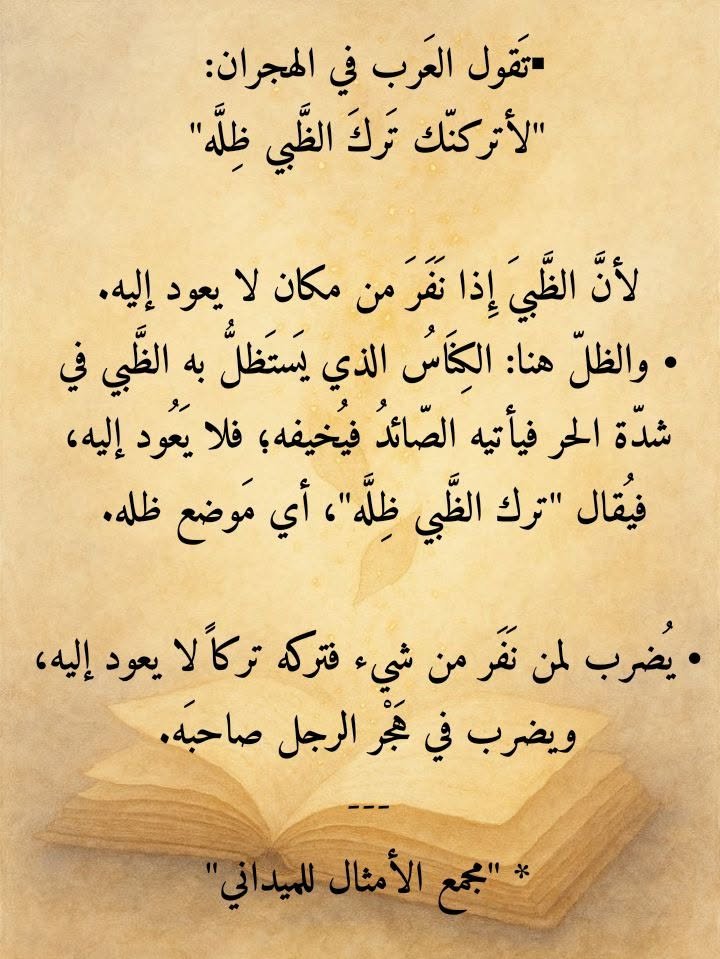 ▪تَقول العَرب في الهجران:
"لأتركنّك تَركَ الظَّبي ظِلَّه"
لأنَّ الظَّبيَ إِذا نَفَرَ من مكان لا يعود إليه.
• والظلّ هنا: الكِنَاسُ الذي يَستَظلُّ به الظَّبي في
شدّة الحر فيأتيه الصّائدُ فيُخيفه؛ فلا يَعُود إليه،
فيُقال "ترك الظَّبي ظِلَّه"، أي مَوضع ظله.
• يُضرب لمن نَفَر من شيء فتركه تركاً لا يعود إليه،
ويضرب في هَجْر الرجل صاحبَه.
---
* "مجمع الأمثال للميداني"